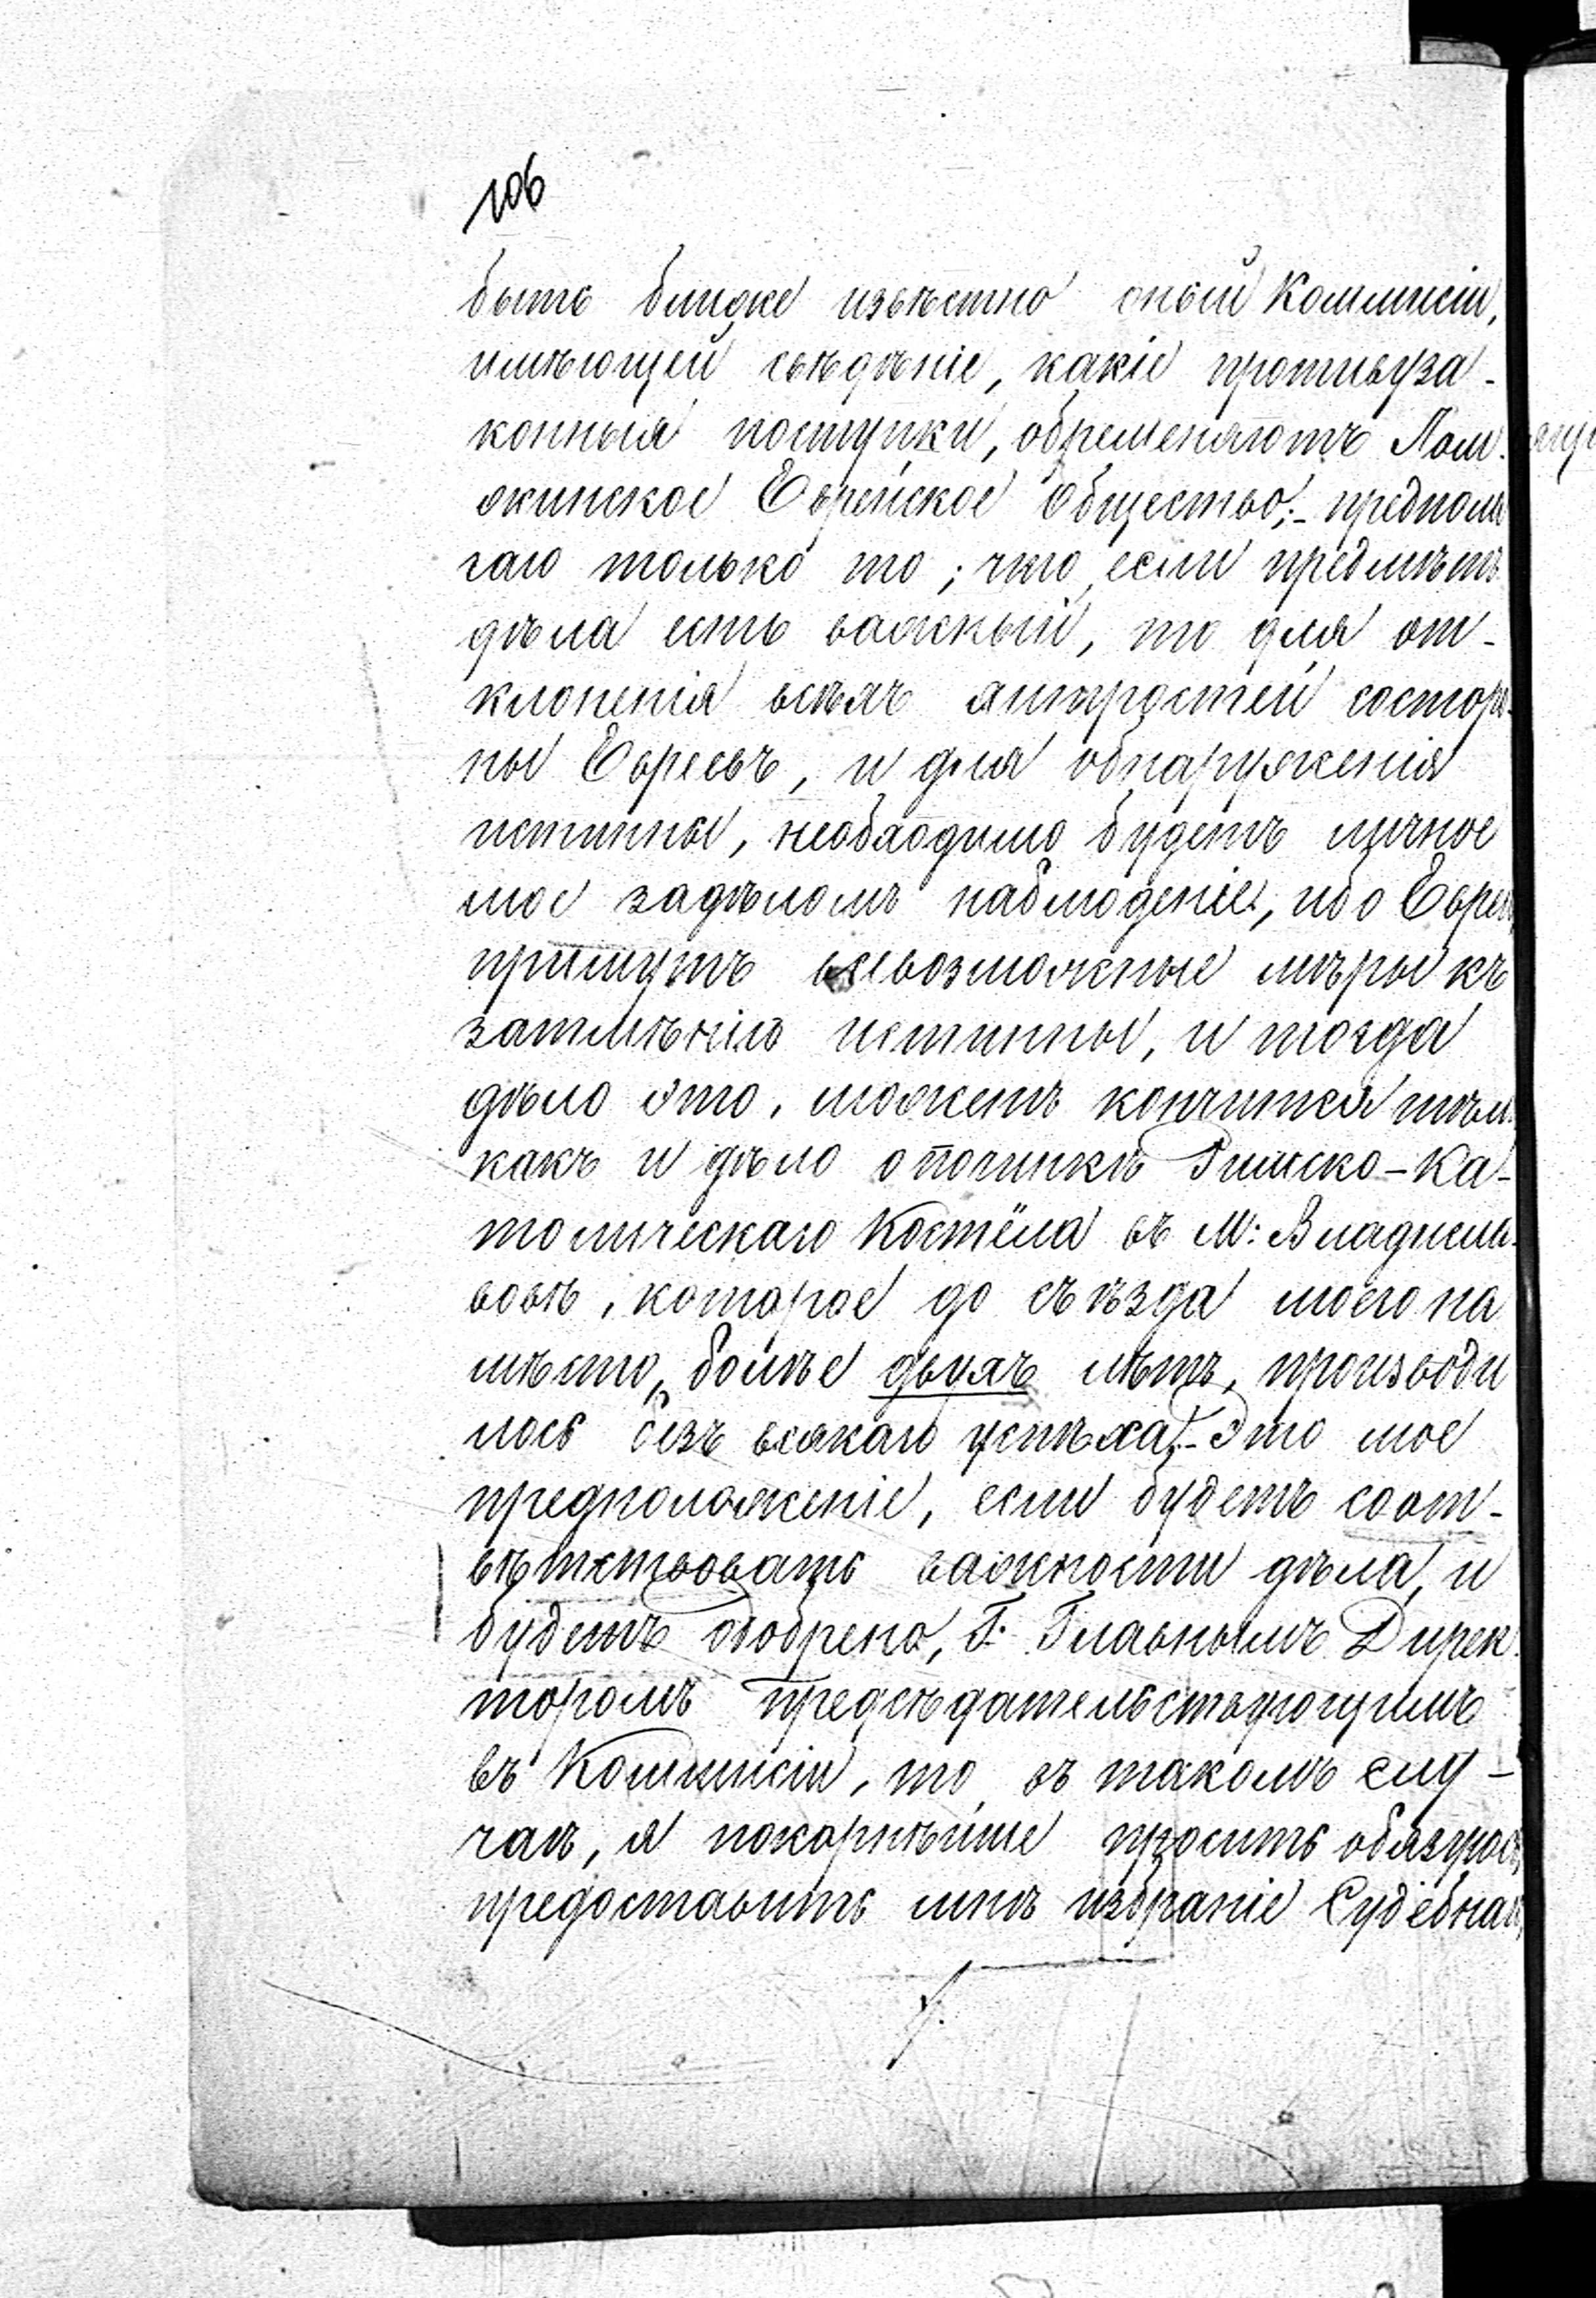 106
быть ближе извѣстно оной Коммисіи,
имѣющей свѣдѣніе, какіе противуза-
конныя поступки, обременяютъ Лом-
жинское Еврейское Общество;- предпола
гаю только то; что если предмѣтъ
дѣла есть важный, то для от-
клоненія всѣхъ хитростей состоро-
ны Евреевъ, и для обнаруженія
истинны, необходимо будетъ личное
мое задѣломъ наблюденіе, ибо Евреи
примутъ всевозможные мѣры къ
затмѣнію истинны, и тогда
дѣло это, можетъ кончится тѣмъ
какъ и дѣло опочинкѣ Римско-Ка-
толическаго Костёла въ М: Владисла-
вовѣ, которое до съѣзда моего на
мѣсто, болѣе двухъ лѣтъ, производи
лось безъ всякаго успѣха;- Это мое
предположеніе, если будетъ соот-
вѣтствовать важности дѣла, и
будетъ одобрено, Г. Главнымъ Дирек
торомъ предсѣдательствующимъ
въ Коммисіи, то въ такомъ слу-
чаѣ, я покорнѣйше просить обязуюсь,
предоставить мнѣ избраніе Судебнаго